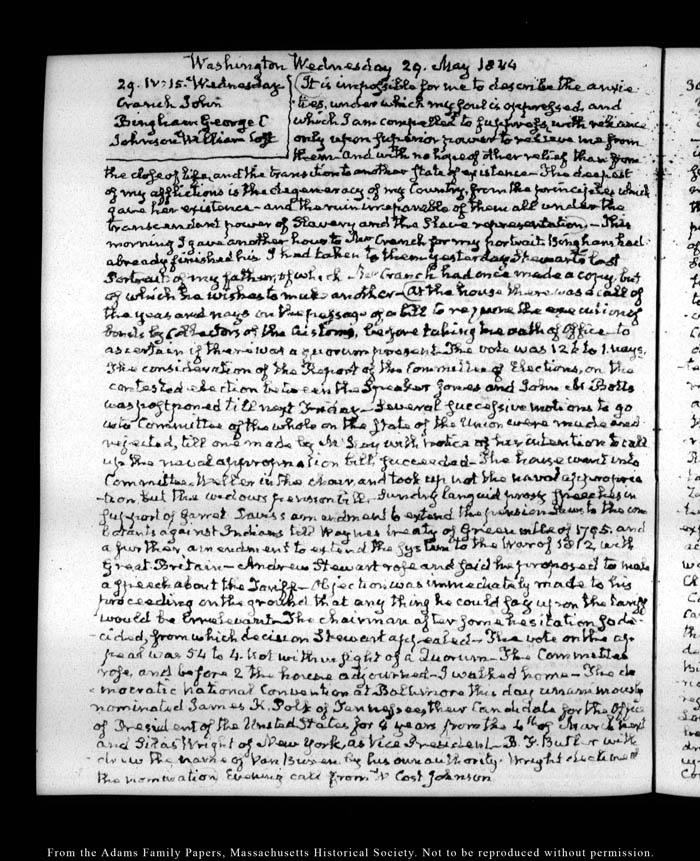 Washington Wednesday 29. May 1844
29. IV:15. Wednesday
Cranch John
Bingham George C
Johnson William Cost
It is impossible for me to describe the anxie
ties, under which my soul is oppressed, and
which I am compelled to suppress, with reliance
only upon superior power to relieve me from
them and with no hope of other relief than from
the close of life, and the transition to another state of existence— The deepest
of my afflictions is the degeneracy of my Country, from the principles which
gave her existence— and the ruin irreparable of them all under the
transcendent power of Slavery and the Slave representation.— This
morning I gave another hour to Mr Cranch for my portrait. Bingham had
already finished his I had taken to them yesterday Stewart's last
Portrait of my father, of which Mr Cranch had once made a copy, but
of which he wishes to make another— At the house there was a call of
the yeas and nays on the passage of a bill to require the execution of
bonds by Collectors of the Customs, before taking the oath of Office to
ascertain if there was a quorum present. The vote was to 1. nays,
The consideration of the Report of the Committee of Elections, on the
contested election between the Speaker Jones and John M Botts
was postponed till next Friday— Several successive motions to go
into Committee of the whole on the State of the Union were made and
rejected, till one made by with notice of his intention to call
up the naval appropriation bill, succeeded— The house went into
Committee. Weller in the chair, and took up not the naval appropria
-tion, but the widows pension bill. Sundry languid prosy speeches in
support of Garret Davis's amendment to extend the pension laws to the com
batants against Indians till Wayne's treaty of Greenville of 1795. and
a further amendment to extend the system to the War of 1812, with
Great Britain— Andrew Stewart rose and said he proposed to make
a speech about the Tariff— Objection was immediately made to his
proceeding on the ground that any thing he could say upon the Tariff
would be irrelevant— The chairman after some hesitation so de-
cided, from which decision Stewart appealed— The vote on the ap-
peal was 54 to 4. Not within sight of a Quorum— The Committee
rose, and before 2 the house adjourned— I walked home— The de
mocratic national Convention at Baltimore this day unanimously
nominated James K. Polk of Tennessee, their Candidate for the Office
of President of the United States for 4 years from the 4th of March next
and Silas Wright of New York, as Vice President— B. F. Butler with
drew the name of Van Buren by his own authority. Wright declined
the nomination Evening call from W Cost Johnson
From the Adams Family Papers, Massachusetts Historical Society. Not to be reproduced without permission.